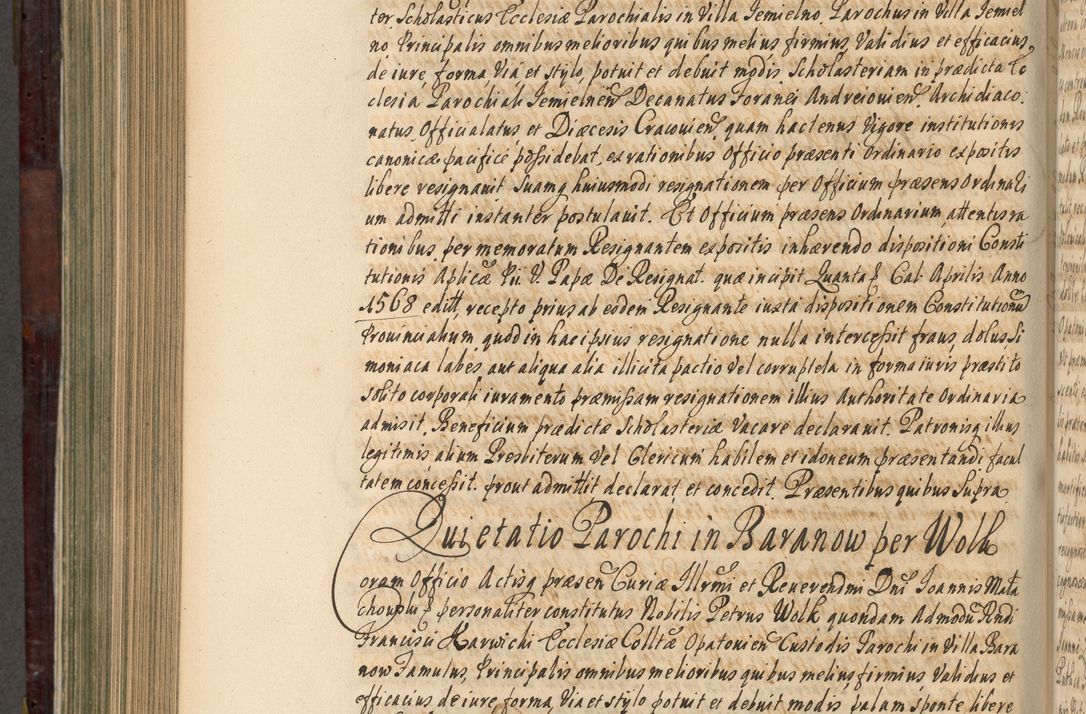 ter Scholasticus Ecclesiæ Parochialis in Villa Jemielno, Parochus in Villa Jemiel
no Principalis omnibus melioribus quibus melius firmius, Validius et efficacius,
de iure, forma, Via et stylo, potuit et debuit modis Scholasteriam in prædicta Ec
clesia Parochiali Jemielnen Decanatus Foranei Andreiouien Archidiaco:
natus, Officialatus et Diæcesis Cracouien quam hactenus Vigore institutionis
canonicæ pacificè possidebat, ex rationibus Officio præsenti Ordinario expositis
libere resignauit Suamq huiusmodi resignationem per Officium præsens Ordinari
um admitti instanter postulauit. Et Officium præsens Ordinarium, attentis ra
tionibus, per memoratum Resignantem expositis inhærendo dispositioni Consti
tutionis Aplicæ Pii V. Papæ De Resignat. quæ incipit Quanta Cal: Aprilis Anno
1568 edit, recepto prius ab eodem Resignante iuxta dispositionem Constitutionum
Prouincialium quod in hac ipsius resignatione nulla intercessit fraus, dolus, Si
moniaca labes, aut aliqua alia illicita pactio vel corruptela in forma iuris præstito
solito corporali iuramento præmissam resignationem illius Authoritate Ordinaria
admisit. Beneficium prædictæ Scholasteriæ Vacare declarauit. Patronisq illius
legitimis alium Presbiterum Vel Clericum habilem et idoneum præsentandi facul
tatem concessit. prout admittit declarat et concedit. Præsentibus quibus Supra
Quietatio Parochi in Baranow per Wolk
Coram Officio Actisq præsen Curiæ Illrmi et Reuerendmi Dni Joannis Mała
chouski personaliter constitutus Nobilis Petrus Wolk quondam Admodu Rndi
Francisci Karwicki Ecclesiæ Colltæ Opatouien Custodis Parochi in Villa Bara
now Famulus, Principalis omnibus melioribus quibus melius firmius Validius et
efficacius de iure, forma, Via et stylo potuit et debuit modis, palam sponte libere